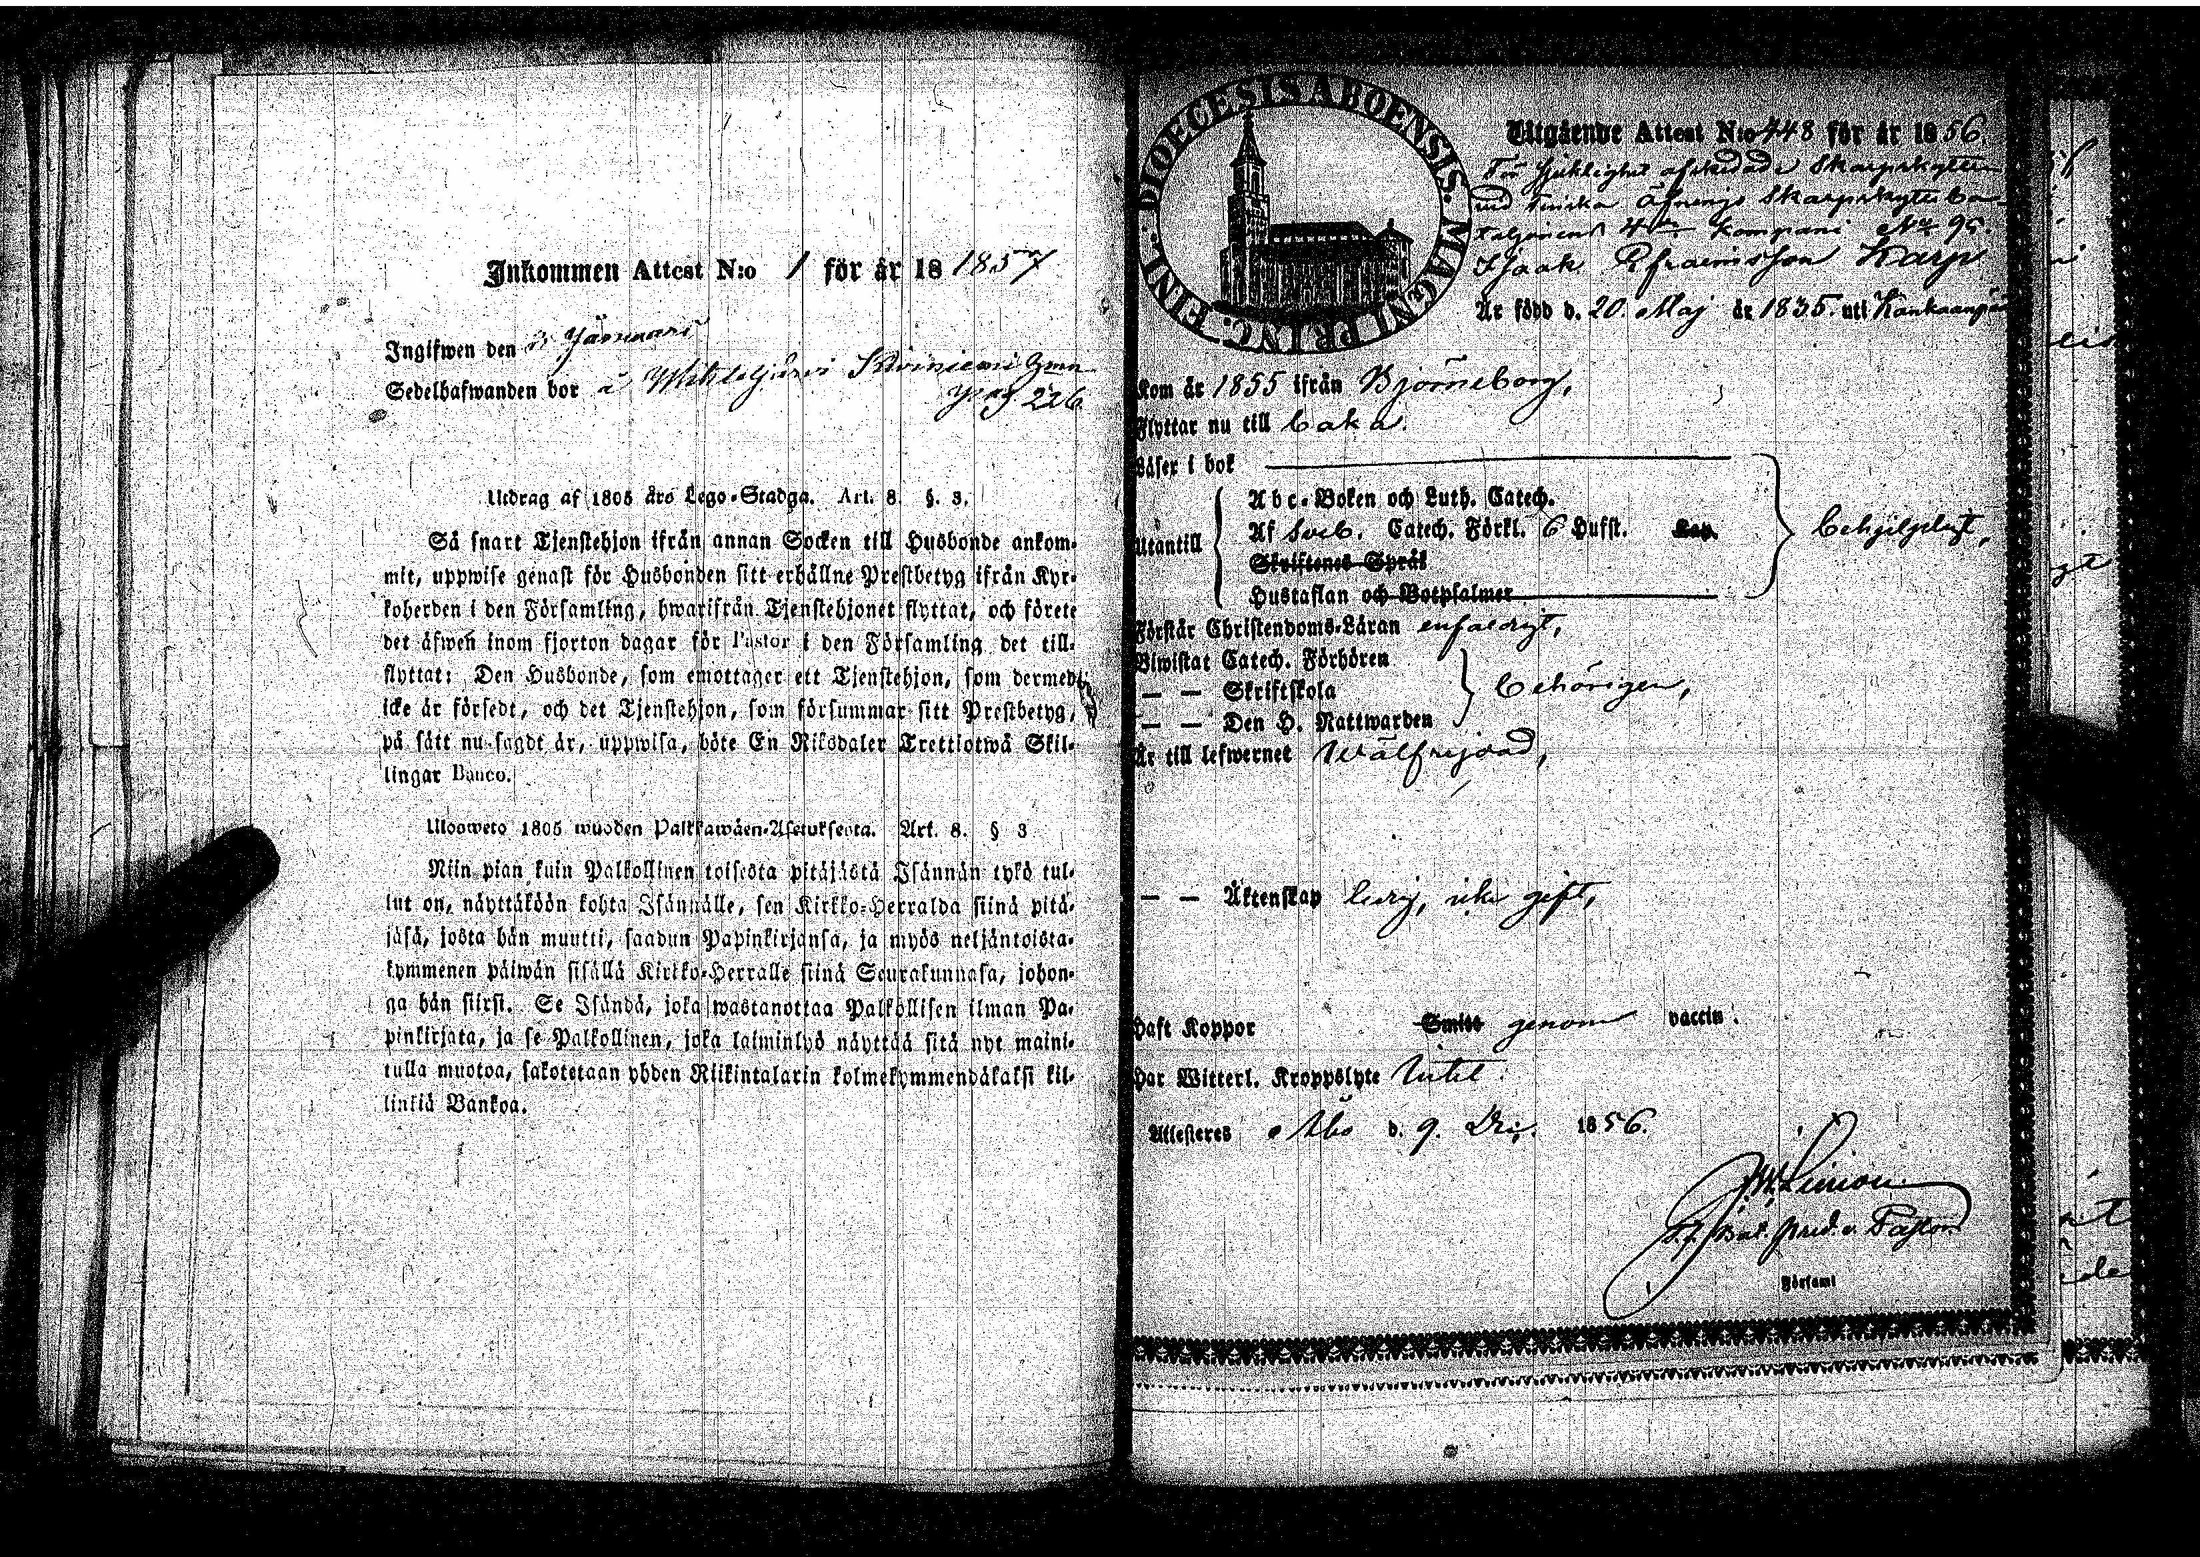 Inkommen Attest N:o 1 för år 18 1857
Ingifwen den Januari
Sedelhafwanden bor å
pag 226
Utdrag af 1805 års Lego-Stadga. Art. 8. §. 3.
Så snart Tjenstehjon ifrån annan Socken till Husbonde ankom-
mit, uppwise genast för Husbonden sitt erhållne Prestbetyg ifrån Kyr-
koherden i den Församling, hwarifrån Tjenstehjonet flyttat, och förete
det äfwen inom fjorton dagar för Pastor i den Församling det till-
flyttat: Den Husbonde, som emottager ett Tjenstehjon, som dermed
icke är försedt, och det Tjenstehjon, som försummar sitt Prestbetyg,
på sätt nu sagdt är, uppwisa, böte En Riksdaler Trettiotwå Skil-
lingar Banco.
Uloswето 1805 wuoden Palkkawäen-Asetuksesta. Art. 8. § 3
Niin pian kuin Palkollinen toisesta pitäjästä Isännän tykö tul-
lut on, näyttäköön kohta Isännälle, sen Kirkko-Herralda siinä pitä-
jäsä, josta hän muutti, saadun Papinkirjansa, ja myös neljäntoista-
kymmenen päiwän sisällä Kirkko-Herralle siinä Seurakunnasa, johon-
ga hän siirsi. Se Isändä, joka wastanottaa Palkollisen ilman Pa-
pinkirjata, ja se Palkollinen, joka laiminlyö näyttää sitä nyt maini-
tulla muotoa, sakotetaan yhden Riikintalarin kolmekymmendäkaksi kil-
linkiä Bankoa.
DIOECESIS ABOENSIS. MAGNI PRINC. FINL.
Utgående Attest N:o 448 för år 1856.
För sjuklighet afskedade Skarpskytten
vid Finska Skarpskytte ba-
taljonens 4de Kompani No 95.
Isaak Efraimsson Karp
Är född d. 20. Maj år 1835. uti Kankaanpää
Kom år 1855 ifrån Björneborg,
Flyttar nu till baka.
Läser i bok
Utantill
Abc-Boken och Luth. Catech.
Af Sveb. Catech. Förkl. 6 Hufst. Kap.
Skriftenes Språk
Hustaflan och Botpsalmer
behjelpligt,
Förstår Christendoms-Läran enfaldigt,
Biwistat Catech. Förhören
— — Skriftskola
— — Den H. Nattwarden
behörigen,
Är till lefwernet Wälfrejdad,
— — Äktenskap ledig, icke gift,
Haft Koppor Smitt genom vaccin.
Har Witterl. Kroppslyte Intet.
Attesteras Åbo d. 9. 1856.
Bat. pred. o. Pastor
Församl